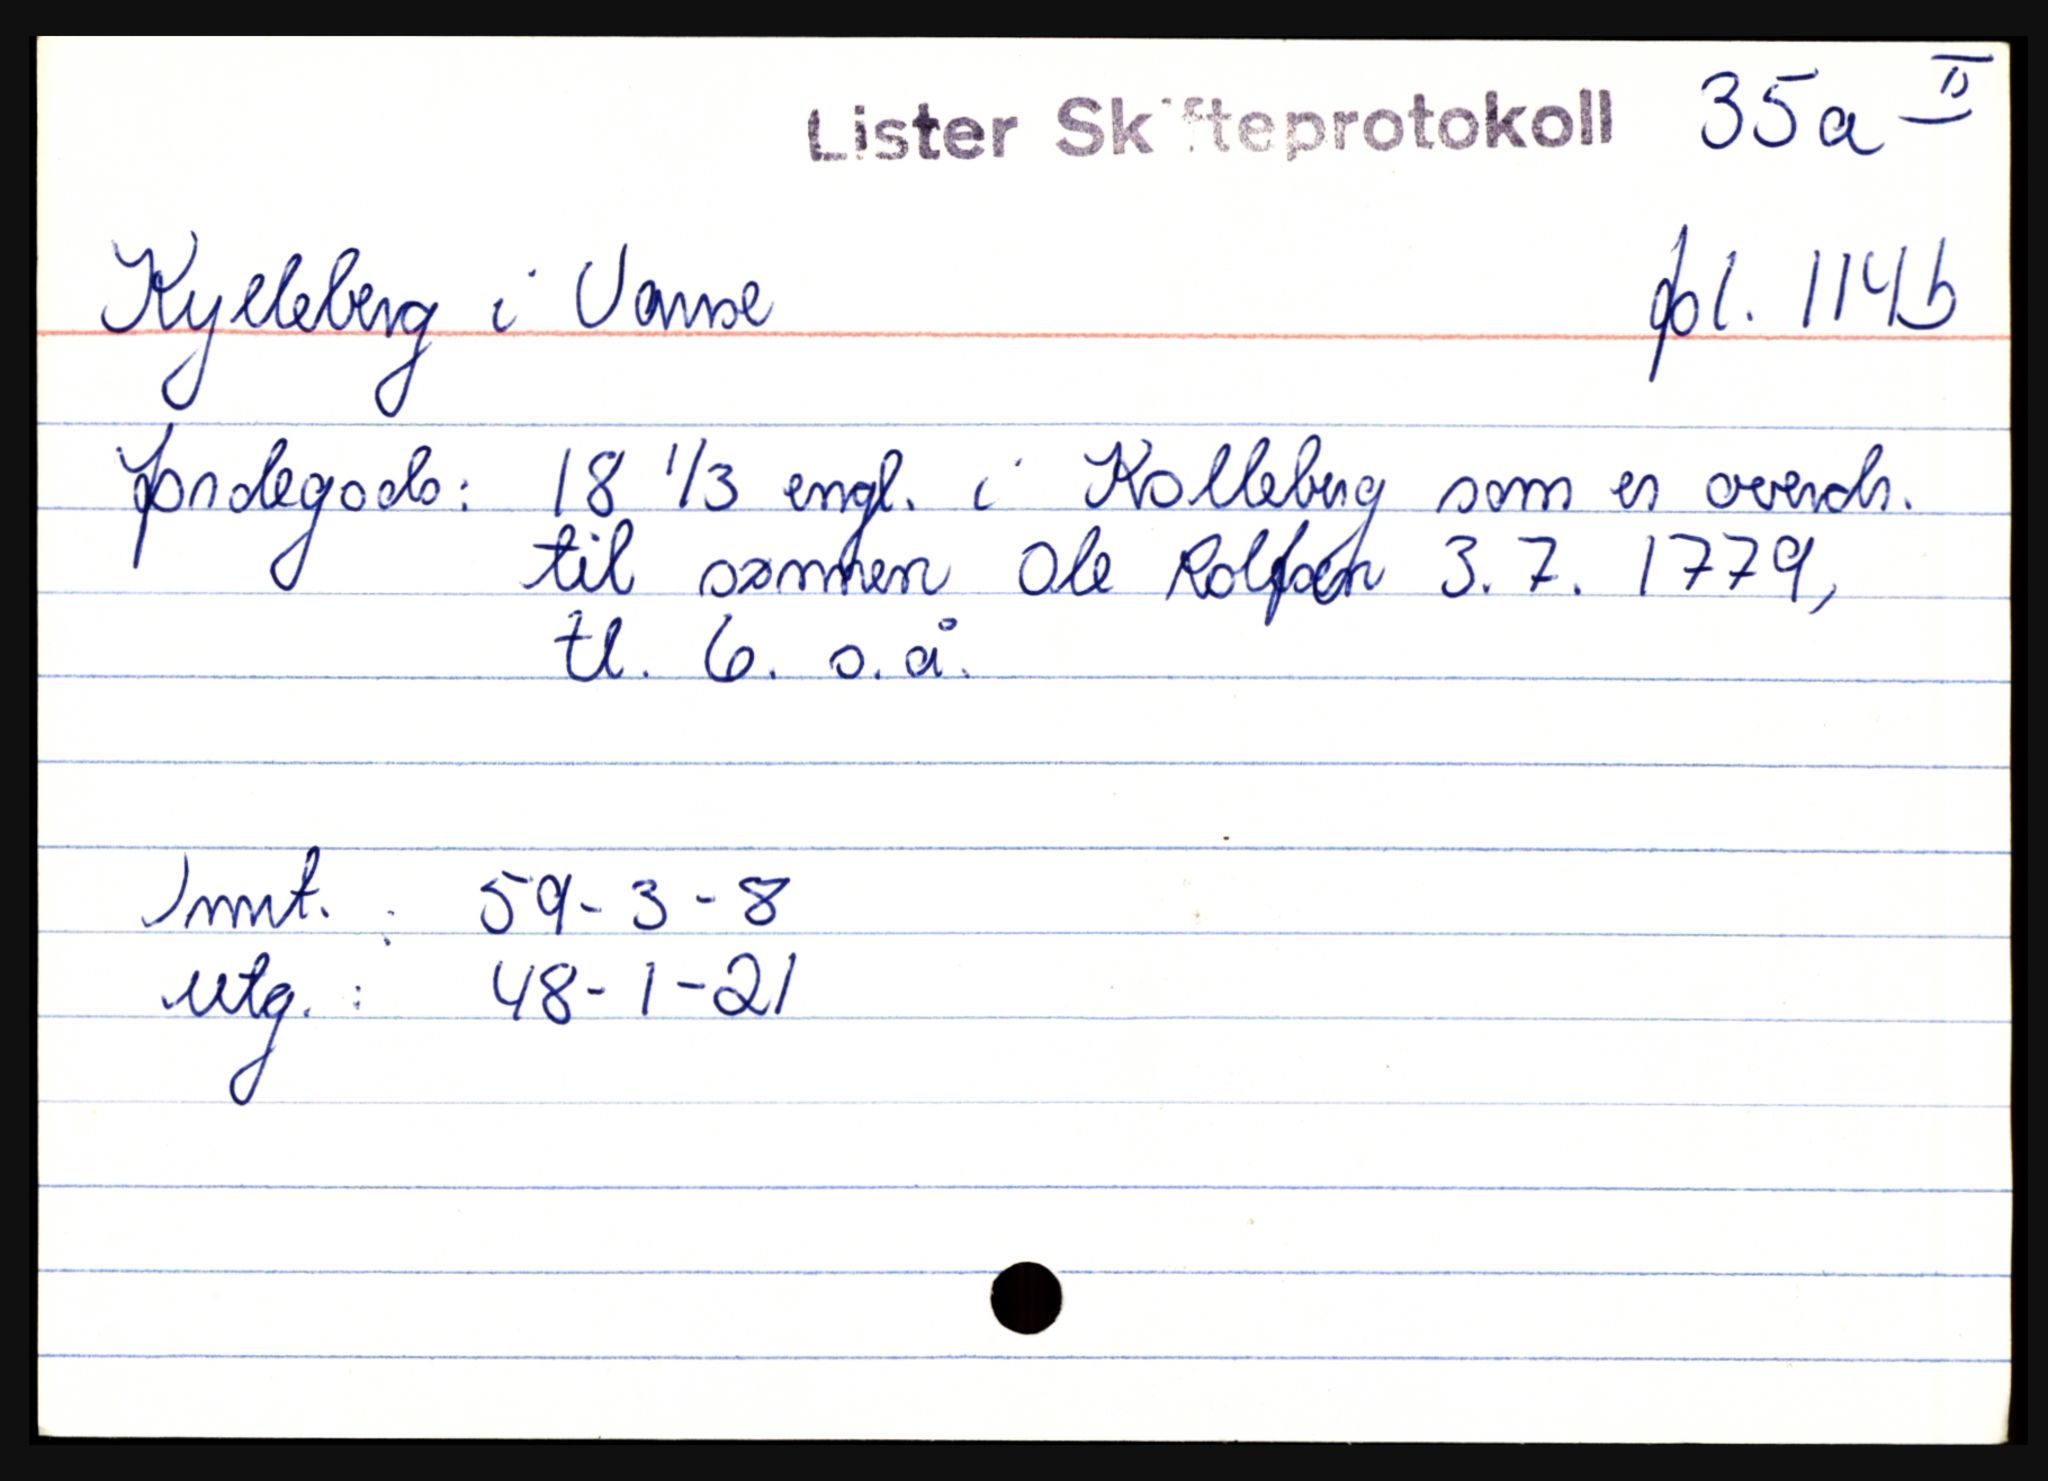 Lister Skifteprotokoll 35a II
Kylleberg i Vanse fol. 114b
Jordegods: 18 1/3 engl. i Kolleberg som er overdr.
til sønnen Ole Rolfsen 3.7. 1779,
tl. 6. s.å.
Innt. : 59-3-8
Utg. : 48-1-21